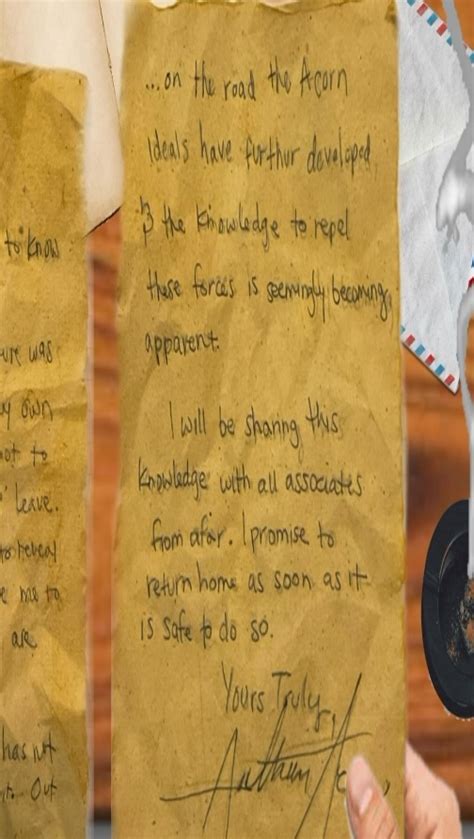 to know
was
own
to
leave.
to reveal
has to
are
has not
Out
...on the road the Acorn
Ideals have furthur developed,
& the knowledge to repel
these forces is seemingly becoming
apparent.
I will be sharing this
knowledge with all associates
from afar. I promise to
return home as soon as it
is safe to do so.
Yours Truly,